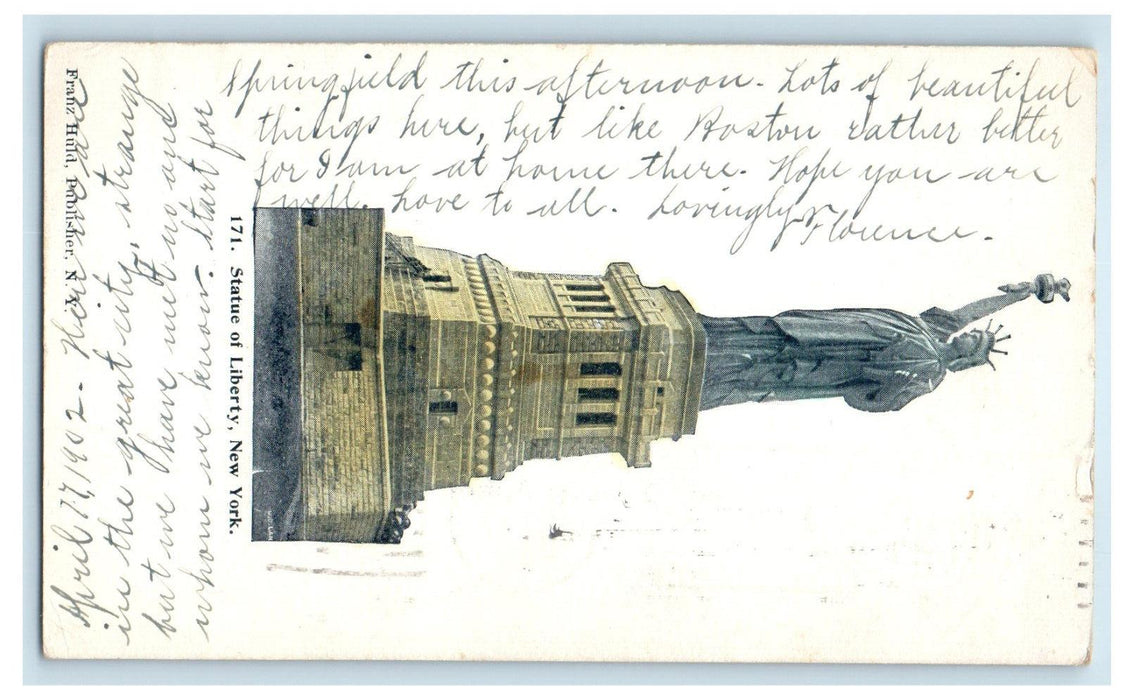 April 27, 1902 - Here we are
in the great city, strange
but we have met no one
whom we know. Start for
Springfield this afternoon. Lots of beautiful
things here, but like Boston rather better
for I am at home there. Hope you are
well. Love to all. Lovingly Florence.
171. Statue of Liberty, New York.
Franz Huld, Publisher, N. Y.